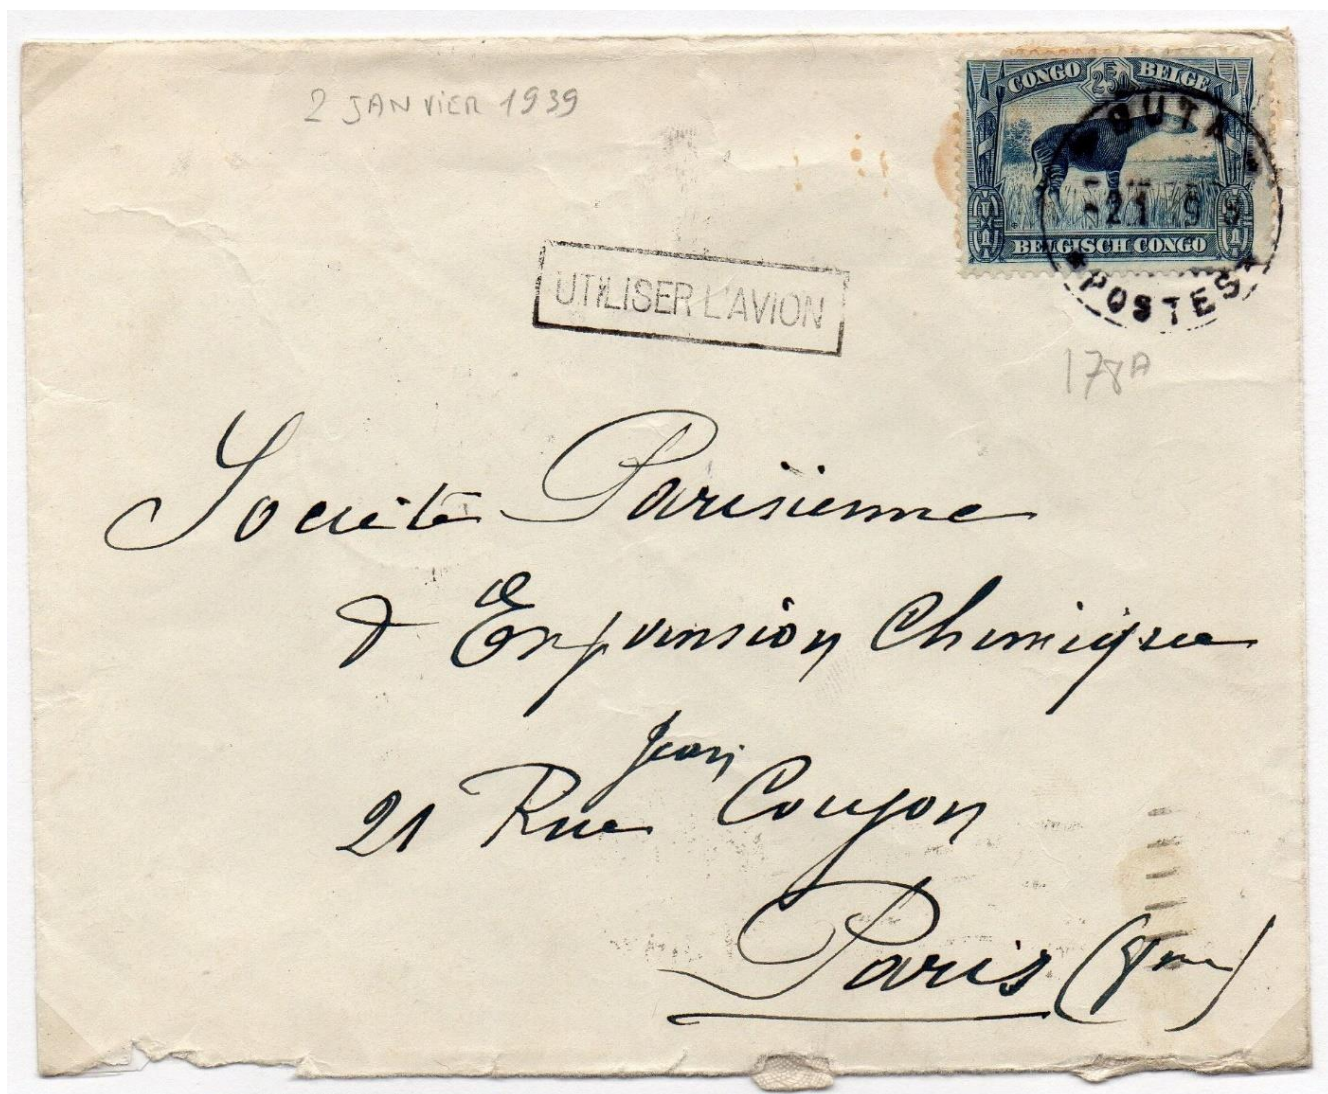 2 JANVIER 1939
CONGO BELGE
BELGISCH CONGO
BUTA
POSTES
UTILISER L'AVION
178A
Société Parisienne
d'Expansion Chimique
21 Rue Jean Goujon
Paris (8me)